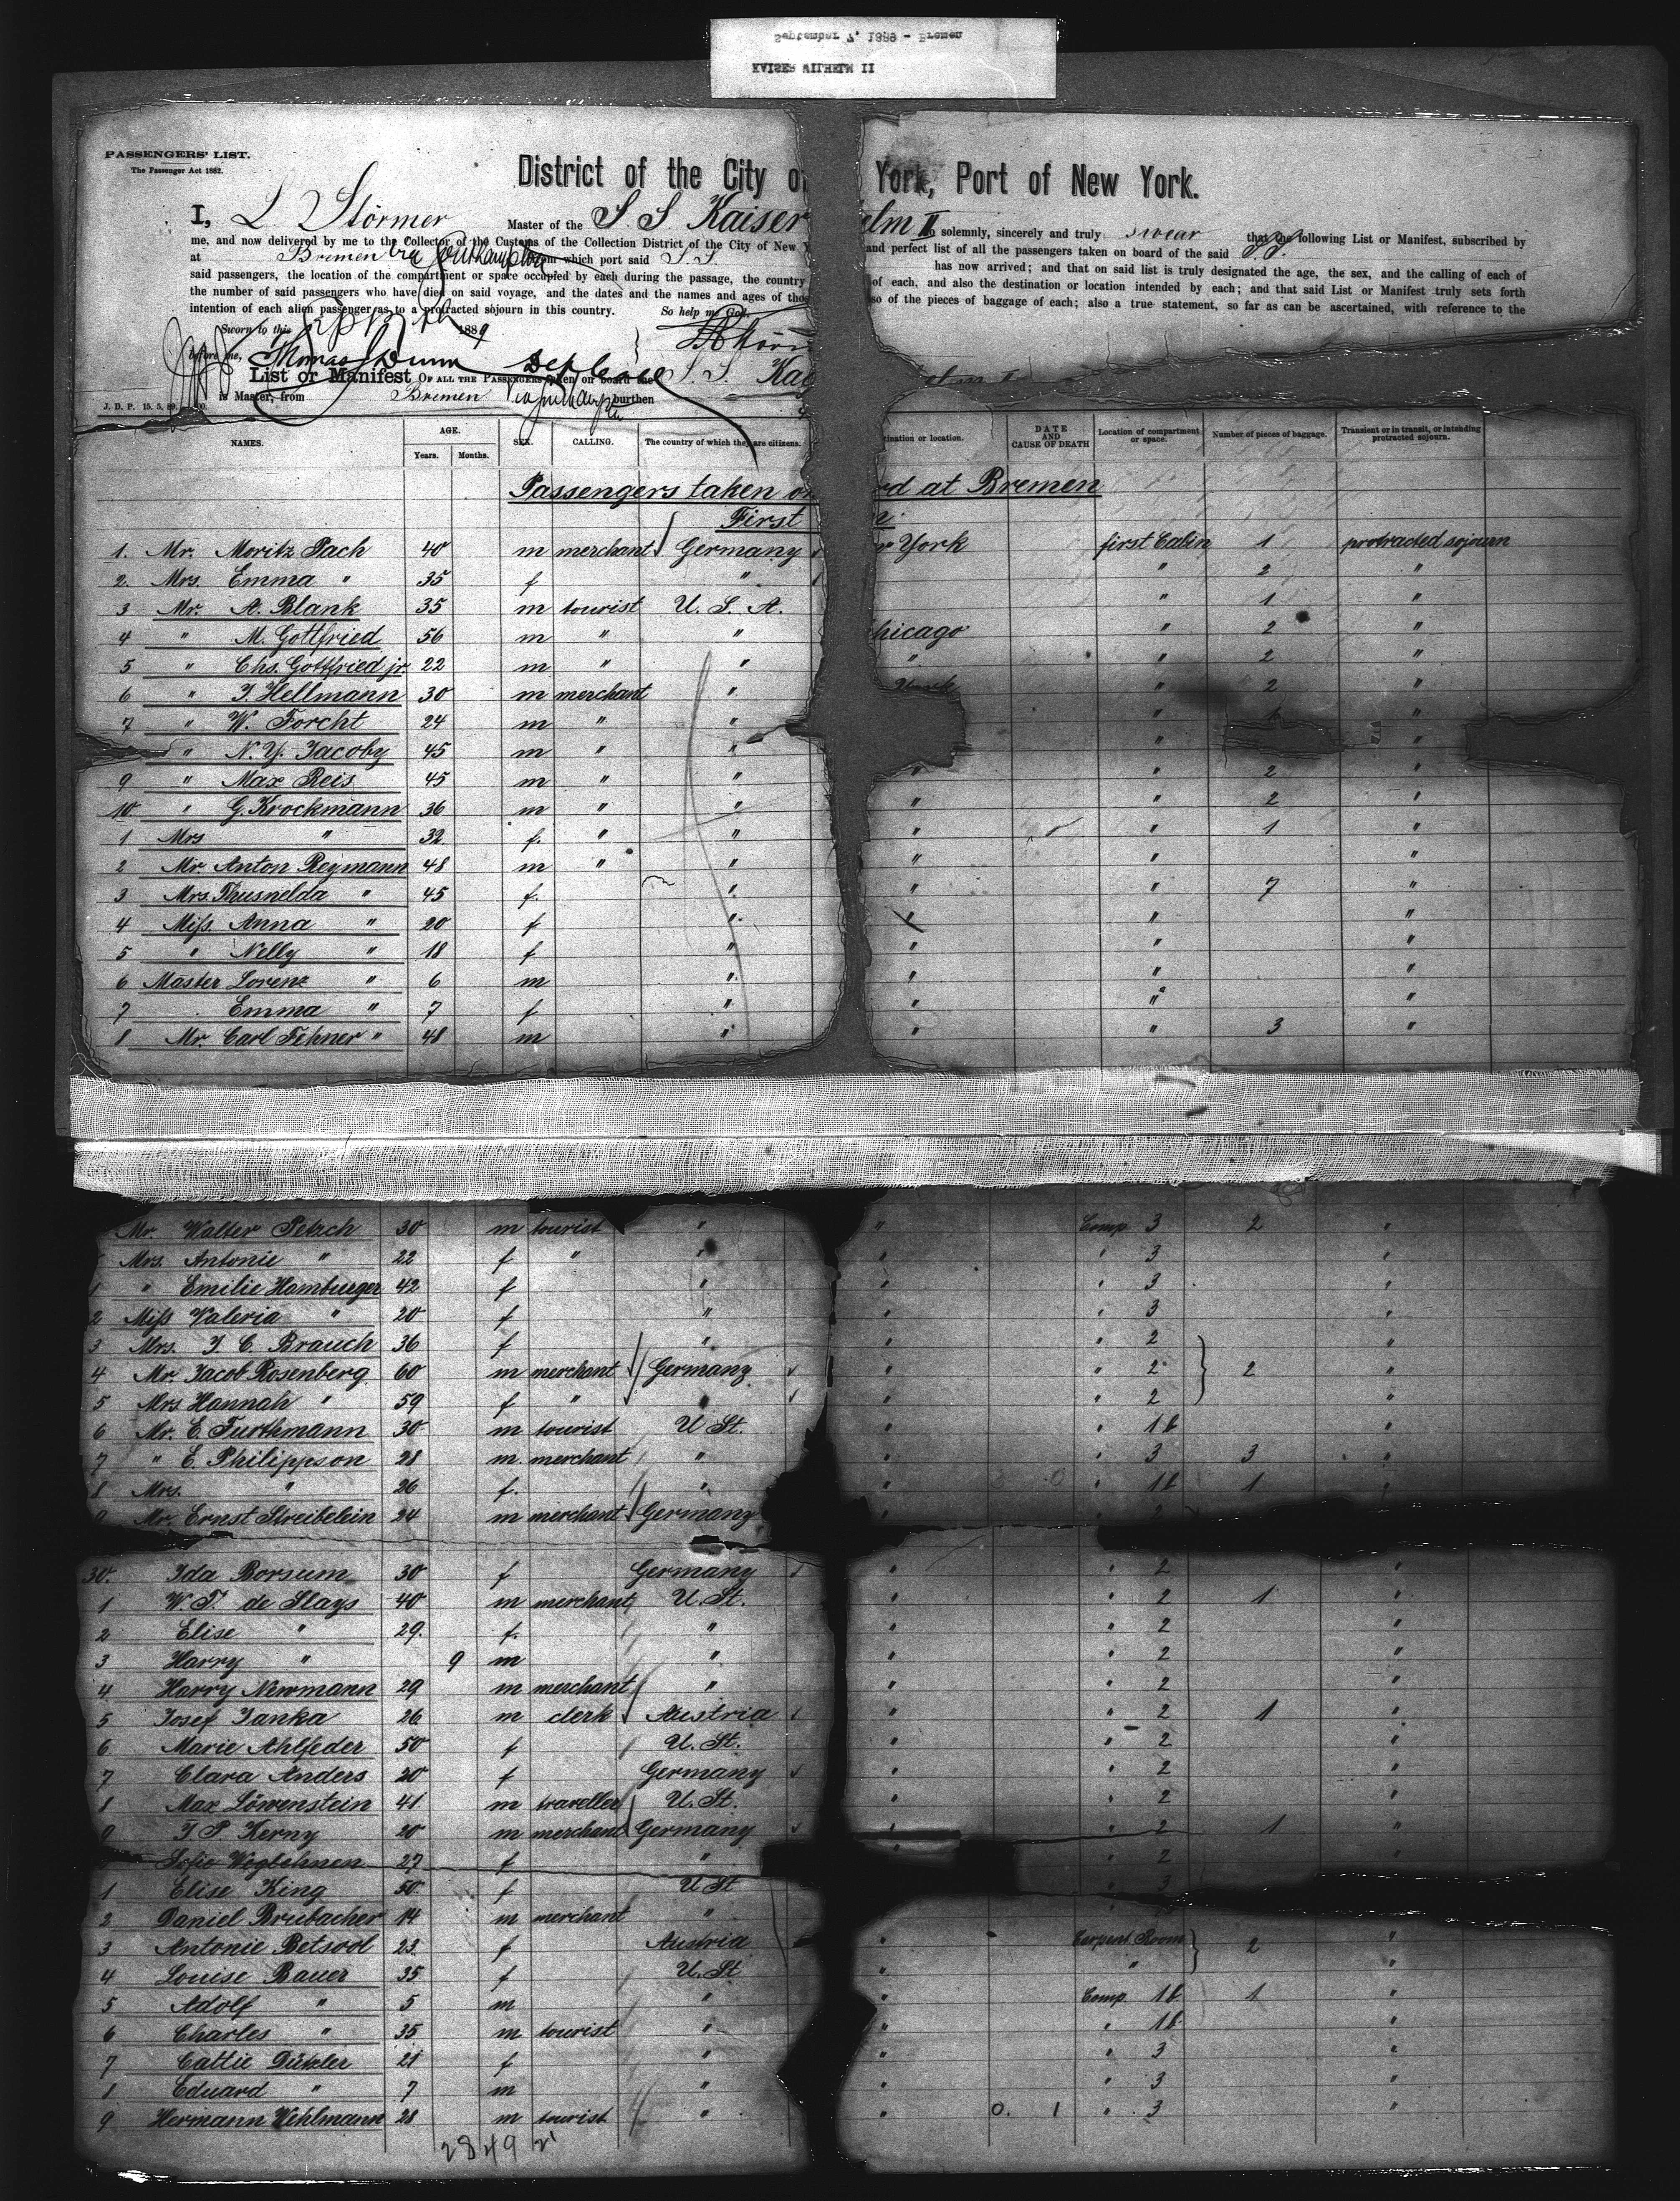 September 7, 1889 - Bremen
KAISER WILHELM II
PASSENGERS' LIST.
The Passenger Act 1882.
District of the City o York, Port of New York.
I, L. Störmer Master of the S S Kaiser elm II do solemnly, sincerely and truly swear that the following List or Manifest, subscribed by
me, and now delivered by me to the Collector of the Customs of the Collection District of the City of New Y and perfect list of all the passengers taken on board of the said S.S.
at Bremen via Southampton from which port said S.S. has now arrived; and that on said list is truly designated the age, the sex, and the calling of each of
said passengers, the location of the compartment or space occupied by each during the passage, the country of each, and also the destination or location intended by each; and that said List or Manifest truly sets forth
the number of said passengers who have died on said voyage, and the dates and the names and ages of thos so of the pieces of baggage of each; also a true statement, so far as can be ascertained, with reference to the
intention of each alien passenger as to a protracted sojourn in this country. So help me God.
Sworn to this 1889
before me, Thomas Dunn
List or Manifest OF ALL THE PASSENGERS taken on board the S. S. Kai elm II
is Master, from Bremen burthen
J. D. P. 15. 5. 89.
NAMES. AGE. Years. Months. SEX. CALLING. The country of which they are citizens. tination or location. DATE AND CAUSE OF DEATH Location of compartment or space. Number of pieces of baggage. Transient or in transit, or intending protracted sojourn.
Passengers taken on rd at Bremen
First
1. Mr. Moritz Pach 40 m merchant Germany York first Cabin 1 protracted sojourn
2. Mrs. Emma " 35 f " " 2 "
3 Mr. A. Blank 35 m tourist U. S. A. " 1 "
4 " M. Gottfried 56 m " " hicago " 2 "
5 " Chs. Gottfried jr. 22 m " " " " 2 "
6 " J. Hellmann 30 m merchant " " 2 "
7 " W. Forcht 24 m " " " "
" N. Y. Jacoby 45 m " " " "
9 " Max Reis 45 m " " " " 2 "
10 " G. Krockmann 36 m " " " " 2 "
1 Mrs " 32 f. " " " " 1 "
2 Mr. Anton Reymann 48 m " " " " "
3 Mrs. Thusnelda " 45 f. " " " 7 "
4 Miss. Anna " 20 f " " " "
5 " Nelly " 18 f " " "
6 Master Lorenz " 6 m " " " "
7 Emma " 7 f " " " "
8 Mr. Carl Fehner " 48 m " " " 3 "
Mr. Walter Petsch 30 m tourist " " Comp 3 2 "
Mrs. Antonie " 22 f " " " " 3 "
1 " Emilie Hamburger 42 f " " " 3 "
2 Miss Valeria " 20 f " " " 3 "
3 Mrs. J. C. Brauch 36 f " " " 2 "
4 Mr. Jacob Rosenberg 60 m merchant Germany " " 2 2 "
5 Mrs Hannah " 59 f " " " " 2 "
6 Mr. E. Furthmann 30 m tourist U St. " " 1b "
7 " E. Philippson 28 m. merchant " " " 3 3 "
8 Mrs. " 26 f. " " " 1b 1 "
9 Mr. Ernst Streibelein 24 m merchant Germany " " 2
30. Ida Borsum 30 f Germany " " 2 "
1 W. F. de Slays 40 m merchant U. St. " " 2 1 "
2 Elise " 29. f. " " " 2 "
3 Harry " 9 m " " " 2 "
4 Harry Newmann 29 m merchant " " " 2 "
5 Josef Janka 26 m clerk Austria " " 2 1 "
6 Marie Ahlfeder 50 f U. St. " " 2 "
7 Clara Anders 20 f Germany " " 2 "
8 Max Löwenstein 41. m traveller U. St. " " 2 "
9 J P. Kerny 20 m merchant Germany " 2 1 "
Sofie 27 f " " " 2
1 Elise King 50 f U St " 3
2 Daniel Brubacher 14 m merchant "
3 Antonie Betsool 23. f Austria " Carpent. Room 2 "
4 Louise Bauer 35 f U. St " " "
5 Adolf " 5 m " " Comp. 1b 1 "
6 Charles " 35 m tourist " " " 1b "
7 Cattie Dützler 21 f " " " 3 "
8 Eduard " 7 m " " " 3 "
9 Hermann Wehlmann 28 m tourist " " 0. 1 " 3 "
2849